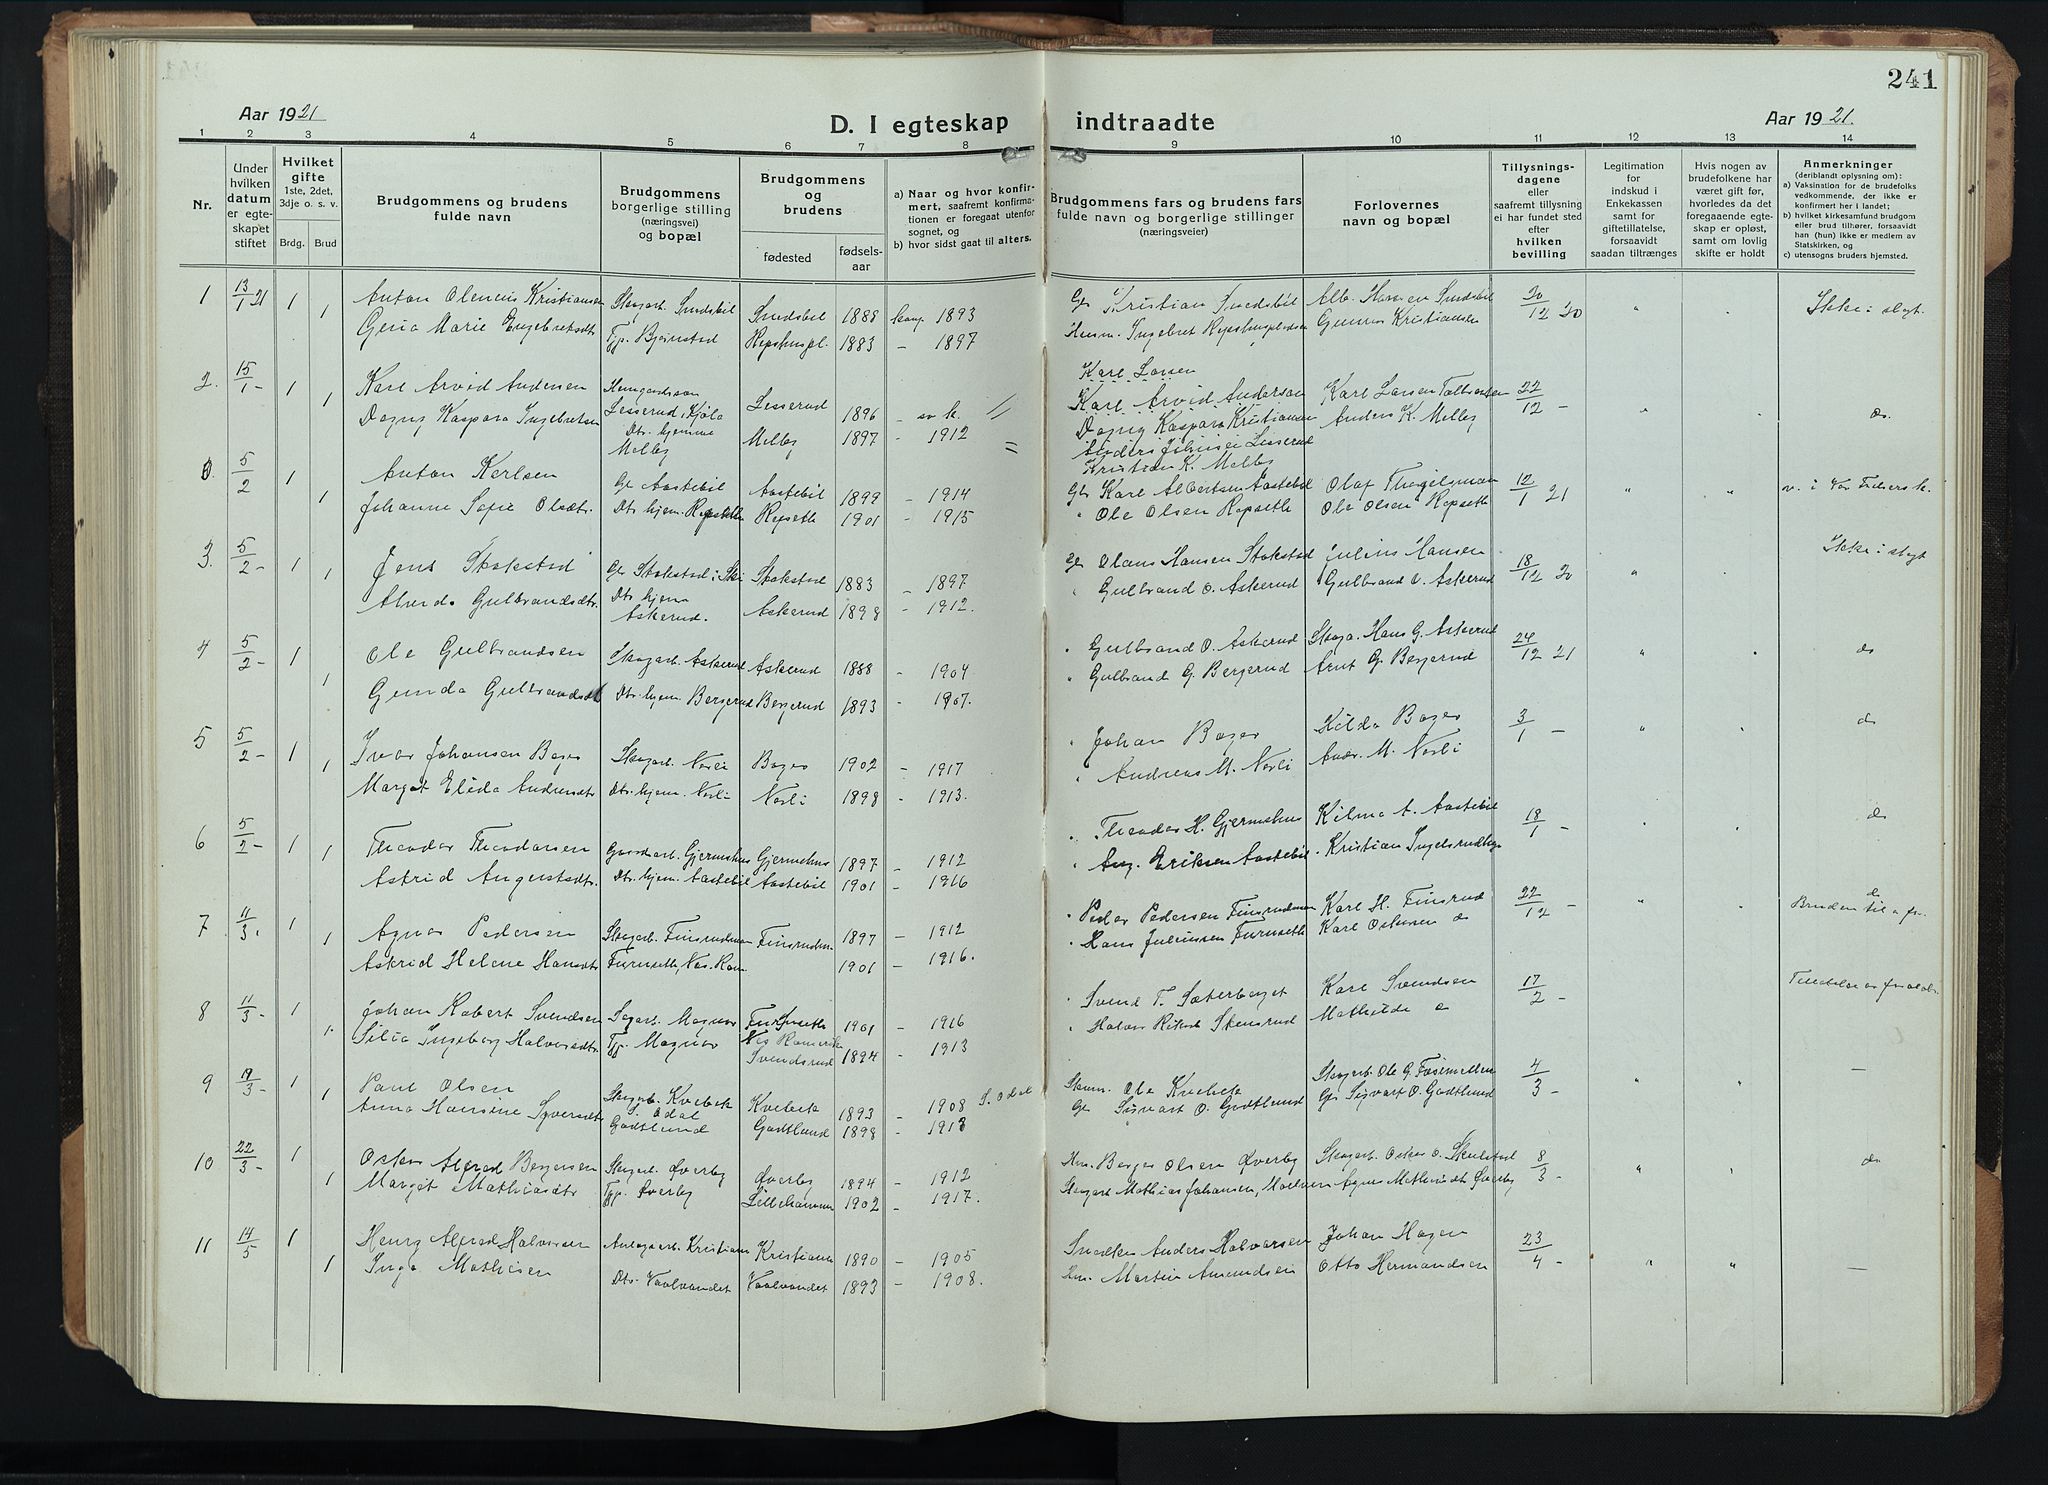 241
Aar 1921
D. I egteskap indtraadte
Aar 1921.
1 2 3 4 5 6 7 8 9 10 11 12 13 14
Nr.
Under hvilken datum er egteskapet stiftet
Hvilket gifte 1ste, 2det, 3dje o. s. v.
Brdg. Brud
Brudgommens og brudens fulde navn
Brudgommens borgerlige stilling (næringsvei) og bopæl
Brudgommens og brudens
fødested fødsels-aar
a) Naar og hvor konfirmert, saafremt konfirmationen er foregaat utenfor sognet, og
b) hvor sidst gaat til alters.
Brudgommens fars og brudens fars fulde navn og borgerlige stillinger (næringsveier)
Forlovernes navn og bopæl
Tillysningsdagene eller saafremt tillysning ei har fundet sted efter hvilken bevilling
Legitimation for indskud i Enkekassen samt for giftetillatelse, forsaavidt saadan tiltrænges
Hvis nogen av brudefolkene har været gift før, hvorledes da det foregaaende egteskap er opløst, samt om lovlig skifte er holdt
Anmerkninger (deriblandt oplysning om):
a) Vaksination for de brudefolks vedkommende, der ikke er konfirmert her i landet;
b) hvilket kirkesamfund brudgom eller brud tilhører, forsaavidt han (hun) ikke er medlem av Statskirken, og
c) utensogns bruders hjemsted.
1 13/1 21 1 Anton Olenius Kristiansen Skogarb. Smedsbøl Smedsbøl 1888 1893 Gb Kristian Smedsbøl Alb. Hansen Smedsbøl 20/12 20 " Ikke i slegt.
1 Gena Marie Engebretsdtr Tjp. Bjørnstad Repshuspl. 1883 - 1897 Husm. Ingebret Gunnar Kristiansen
2. 15/1 - 1 Karl Arvid Andersen Lesserud, Kjøla Lesserud 1896 - Karl Larsen
1 Dagny Kaspara Ingebretsen Dtr. hjemme Melby Melby 1897 - 1912 Karl Arvid Andersen Karl Larsen 22/12 - " do.
Dagny Kaspara Kristiansen Anders K. Melby
Anders Johansen Lesserud
Kristian K. Melby
5/2 1 Anton Karlsen Gb Aastebøl Aastebøl 1899 - 1914 Gb Karl Albertsen Aastebøl Olaf 12/1 21 " "
1 Johanne Sofie Olsdtr. Dtr. hjem. Repseth Repseth 1901 - 1915 " Ole Olsen Repseth Ole Olsen Repseth
3. 5/2 - 1 Jens Stokstad Gb Stokstad i Ski Stokstad 1883 - 1897 gb Olaus Hansen Stokstad Julius Hansen 18/12 20 " Ikke i slegt
1 Alvida Gulbrandsdtr. Dtr hjem Askerud. Askerud 1898 - 1912. " Gulbrand O. Askerud Gulbrand O. Askerud
4 5/2 - 1 Ole Gulbrandsen Skogarb. Askerud Askerud 1888 - 1904 " Gulbrand O. Askerud Skoga. Hans G. Askerud 24/12 21 " do
1 Gunda Gulbrandsdt Dtr. hjem. Bergerud Bergerud 1893 - 1907. " Gulbrand G. Bergerud Arnt G. Bergerud
5 5/2 - 1 Ivar Johansen Bager Skogarb. Norli Bager 1902 - 1917 " Johan Bager Hilda Bager 3/1 - " do
1 Margit Elida Andreasdtr Dtr. hjem. Norli Norli 1898 - 1913. " Andreas M. Norli Andr. M. Norli
6 5/2 - 1 Theodor Theodorsen Gaardarb. Gjermshus Gjermshus 1897 - 1912 " Theodor H. Gjermshus Hilma A. Aastebøl 18/1 - do
1 Astrid Augustsdtr. Dtr. hjem. Aastebøl Aastebøl 1901 - 1916 " Aug. Eriksen Aastebøl Kristian
7 11/3. 1 Agnar Pedersen Skogarb. Finsrudmoen Finsrudm. 1897 - 1912 " Peder Pedersen Finsrudmoen Karl H. Finsrud 22/12 - " do
1 Astrid Helene Hansdtr Furuseth, Nes. Rom. 1901 - 1916. " Hans Julinsen Furuseth Karl Ostensen do Bruden til
8 11/3 - 1 Johan Robert Svendsen Sagarb. Magnor Furuseth Nes Romerike 1901 - 1916 " Svend T. Sæterberget Karl Svendsen 17/2 -
1. Silia Ingeborg Halvorsdtr. Tjp. Magnor Svendsrud 1894 - 1913 " Halvor Stensrud Mathilde do
9 19/3 - 1 Paul Olsen Skogarb. Kvebek S. Odal Kvebek 1893 - 1908 S. Odal Skom. Ole Kvebek Skogarb Ole G. 4/3 - " —
1 Anna Hansine Syversdtr Godtlund Godtlund 1898 - 1913 Gb Sigvart O. Godtlund Gb Sigvart O. Godtlund
10 22/3 - 1 Oskar Alfred Bergersen Skogarb. Øverby Øverby 1894 - 1912 Hm. Berger Olsen Øverby Skogarb. Oskar O. Skulstad 8/3 - " do
1 Margit Mathiasdtr Tjp. Øverby Lillehammer 1902 - 1917. Skogarb Mathias Johansen, Moelven Agnes Mathiasdt Øverby
11 14/5 1 Henry Alfred Halvorsen Anlægsarb. Kristiania Kristiania 1890 - 1905 Snedker Anders Halvorsen Johan Hagen 23/4 - " —
1 Inga Mathisen Dtr. Vaalvandet Vaalvandet 1893 - 1908. Hm. Martin Amundsen Otto Hermandsen